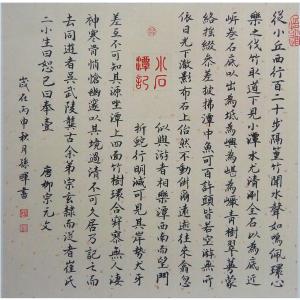 從小丘西行百二十步隔篁竹聞水聲如鳴佩環心
樂之伐竹取道下見小潭水尤清洌全石以為底近
岸卷石底以出為坻為嶼為嵁為巖青樹翠蔓蒙
絡搖綴參差披拂潭中魚可百許頭皆若空游無所
依日光下澈影布石上佁然不動俶爾遠逝往來翕忽
小石
潭記
似與游者相樂潭西南而望斗
折蛇行明滅可見其岸勢犬牙
差互不可知其源坐潭上四面竹樹環合寂寥無人淒
神寒骨悄愴幽邃以其境過清不可久居乃記之而
去同遊者吳武陵龔古余弟宗玄隸而從者崔氏
二小生曰恕己曰奉壹 唐柳宗元文
歲在丙申秋月孫暉書